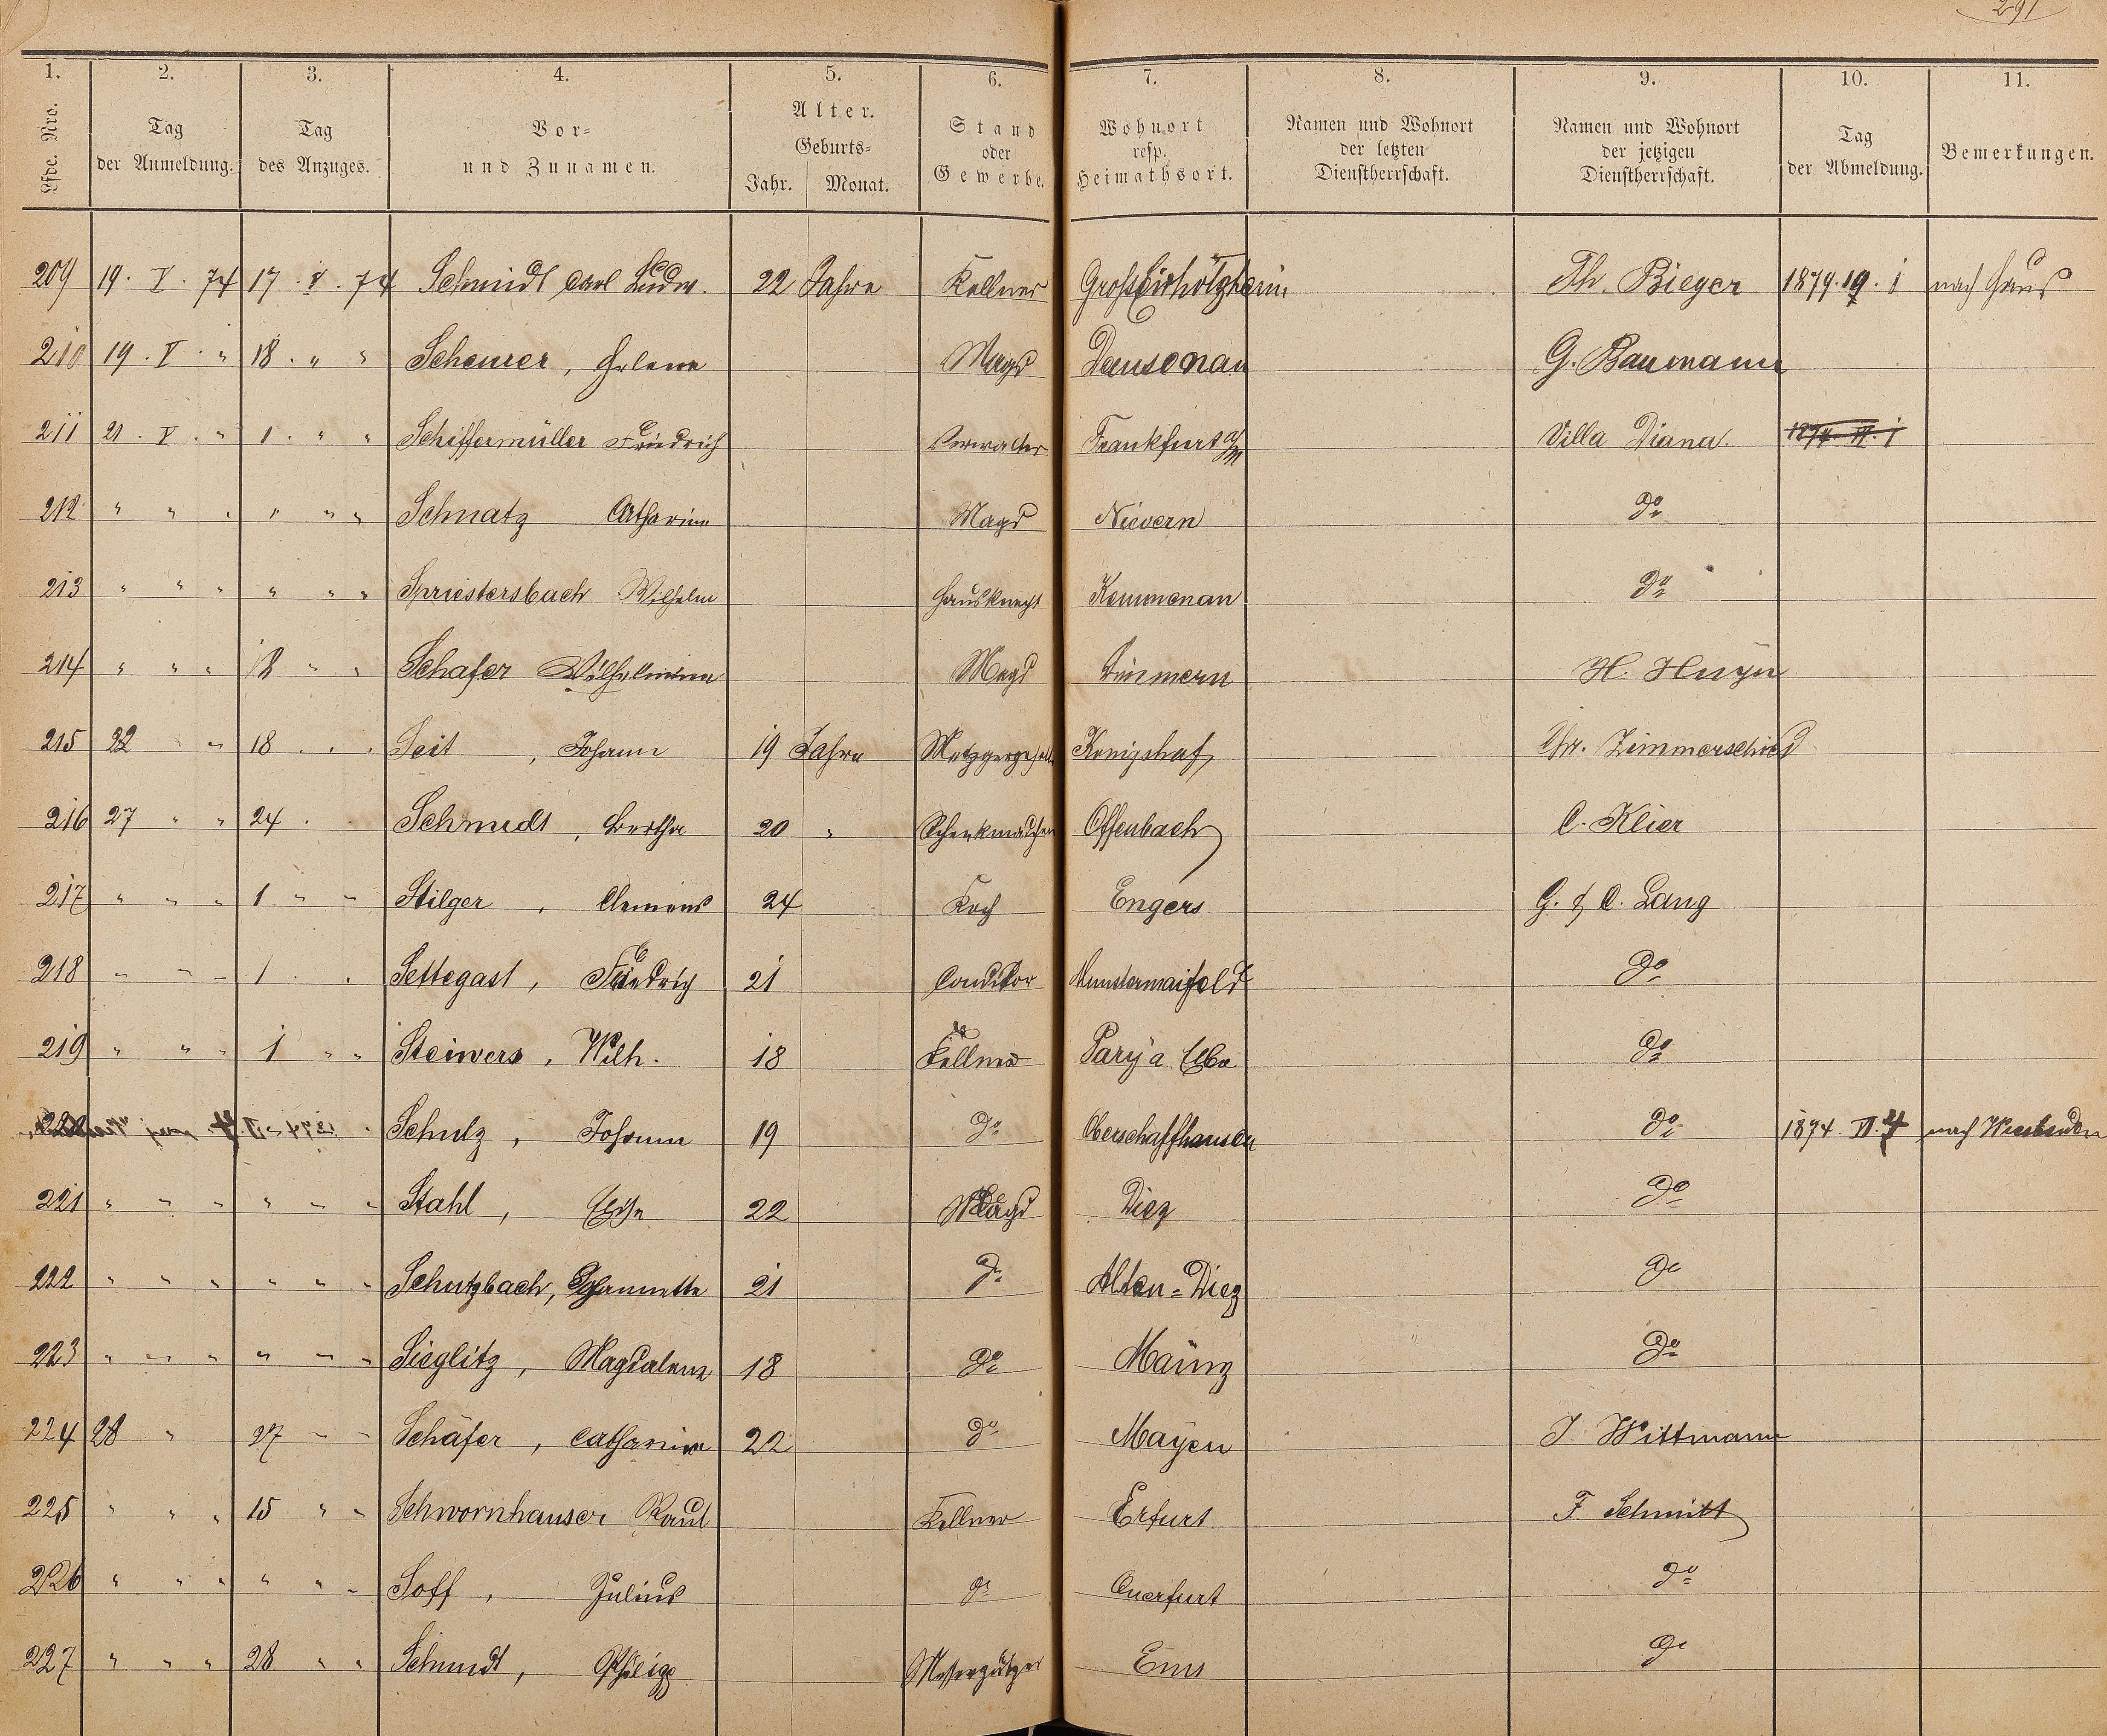 291
1. 2. 3. 4. 5. 6. 7. 8. 9. 10. 11.
Lfde. Nro. | Tag der Anmeldung. | Tag des Anzuges. | Vor- und Zunamen. | Alter. Geburts- Jahr. Monat. | Stand oder Gewerbe. | Wohnort resp. Heimathsort. | Namen und Wohnort der letzten Dienstherrschaft. | Namen und Wohnort der jetzigen Dienstherrschaft. | Tag der Abmeldung. | Bemerkungen.
209 19. V. 74 17. V. 74 Schmidt Carl Ludw. 22 Jahre Kellner Th. Bieger 1874. 19. i nach Haus
210 19. V. " 18. " " Scheurer, Helene Magd Dausenau G. Baumann
211 21. V. " 1. " " Schiffermüller Friedrich Verwalter Frankfurt a/M Villa Diana.
212 " " " " " " Schnatz Catharine Magd Nievern do
213 " " " " " " Spriestersbach Wilhelm Hausknecht Kemmenau do
214 " " " 18 " " Schafer Wilhelmine Magd Zimmern H. Huyn
215 22 " 18 . . Seit, Johann 19 Jahre Metzgergeselle Königshof Chr. Zimmerschied
216 27 " " 24 . Schmidt, Bertha 20 " Offenbach C. Klier
217 " " " 1 " " Stilger, Clemens 24 Koch Engers G. & C. Lang
218 " " " 1 . . Settegast, Friedrich 21 Conditor Munstermaifeld do
219 " " " 1 " " Steiwers, Wilh. 18 Kellner Parÿ a Elbe do
220 Schulz, Johann 19 do Oberschaffhausen do 1874. VI. 4 nach Wiesbaden
221 " " " " " " Stahl, Elise 22 Magd Diez do
222 " " " " " " Schutzbach, Jeannette 21 do Alten-Diez do
223 " " " " " " Sieglitz, Magdalena 18 do Mainz do
224 28 " 27 " " Schäfer, Catharine 22 do Mayen J Wittmann
225 " " " 15 " " Schwornhauser Paul Kellner Erfurt F. Schmitt
226 " " " " " " Soff, Julius do Querfurt do
227 " " " 28 " " Schmidt, Philipp Messerputzer Ems do